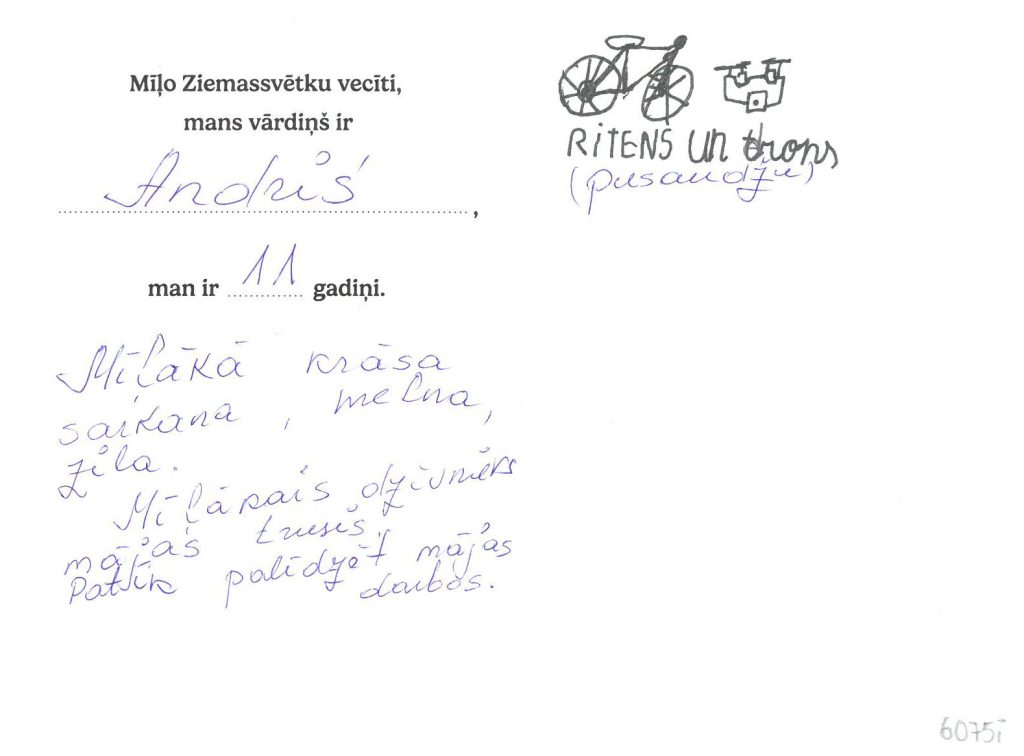 Mīļo Ziemassvētku vecīti,
mans vārdiņš ir
Andris,
man ir 11 gadiņi.
Mīļākā krāsa
sarkana, melna,
zila.
Mīļākais dzīvnieks
mājas trusis.
Patīk palīdzēt mājas
darbos.
RiTENS un drons
(pusaudžu)
6075i